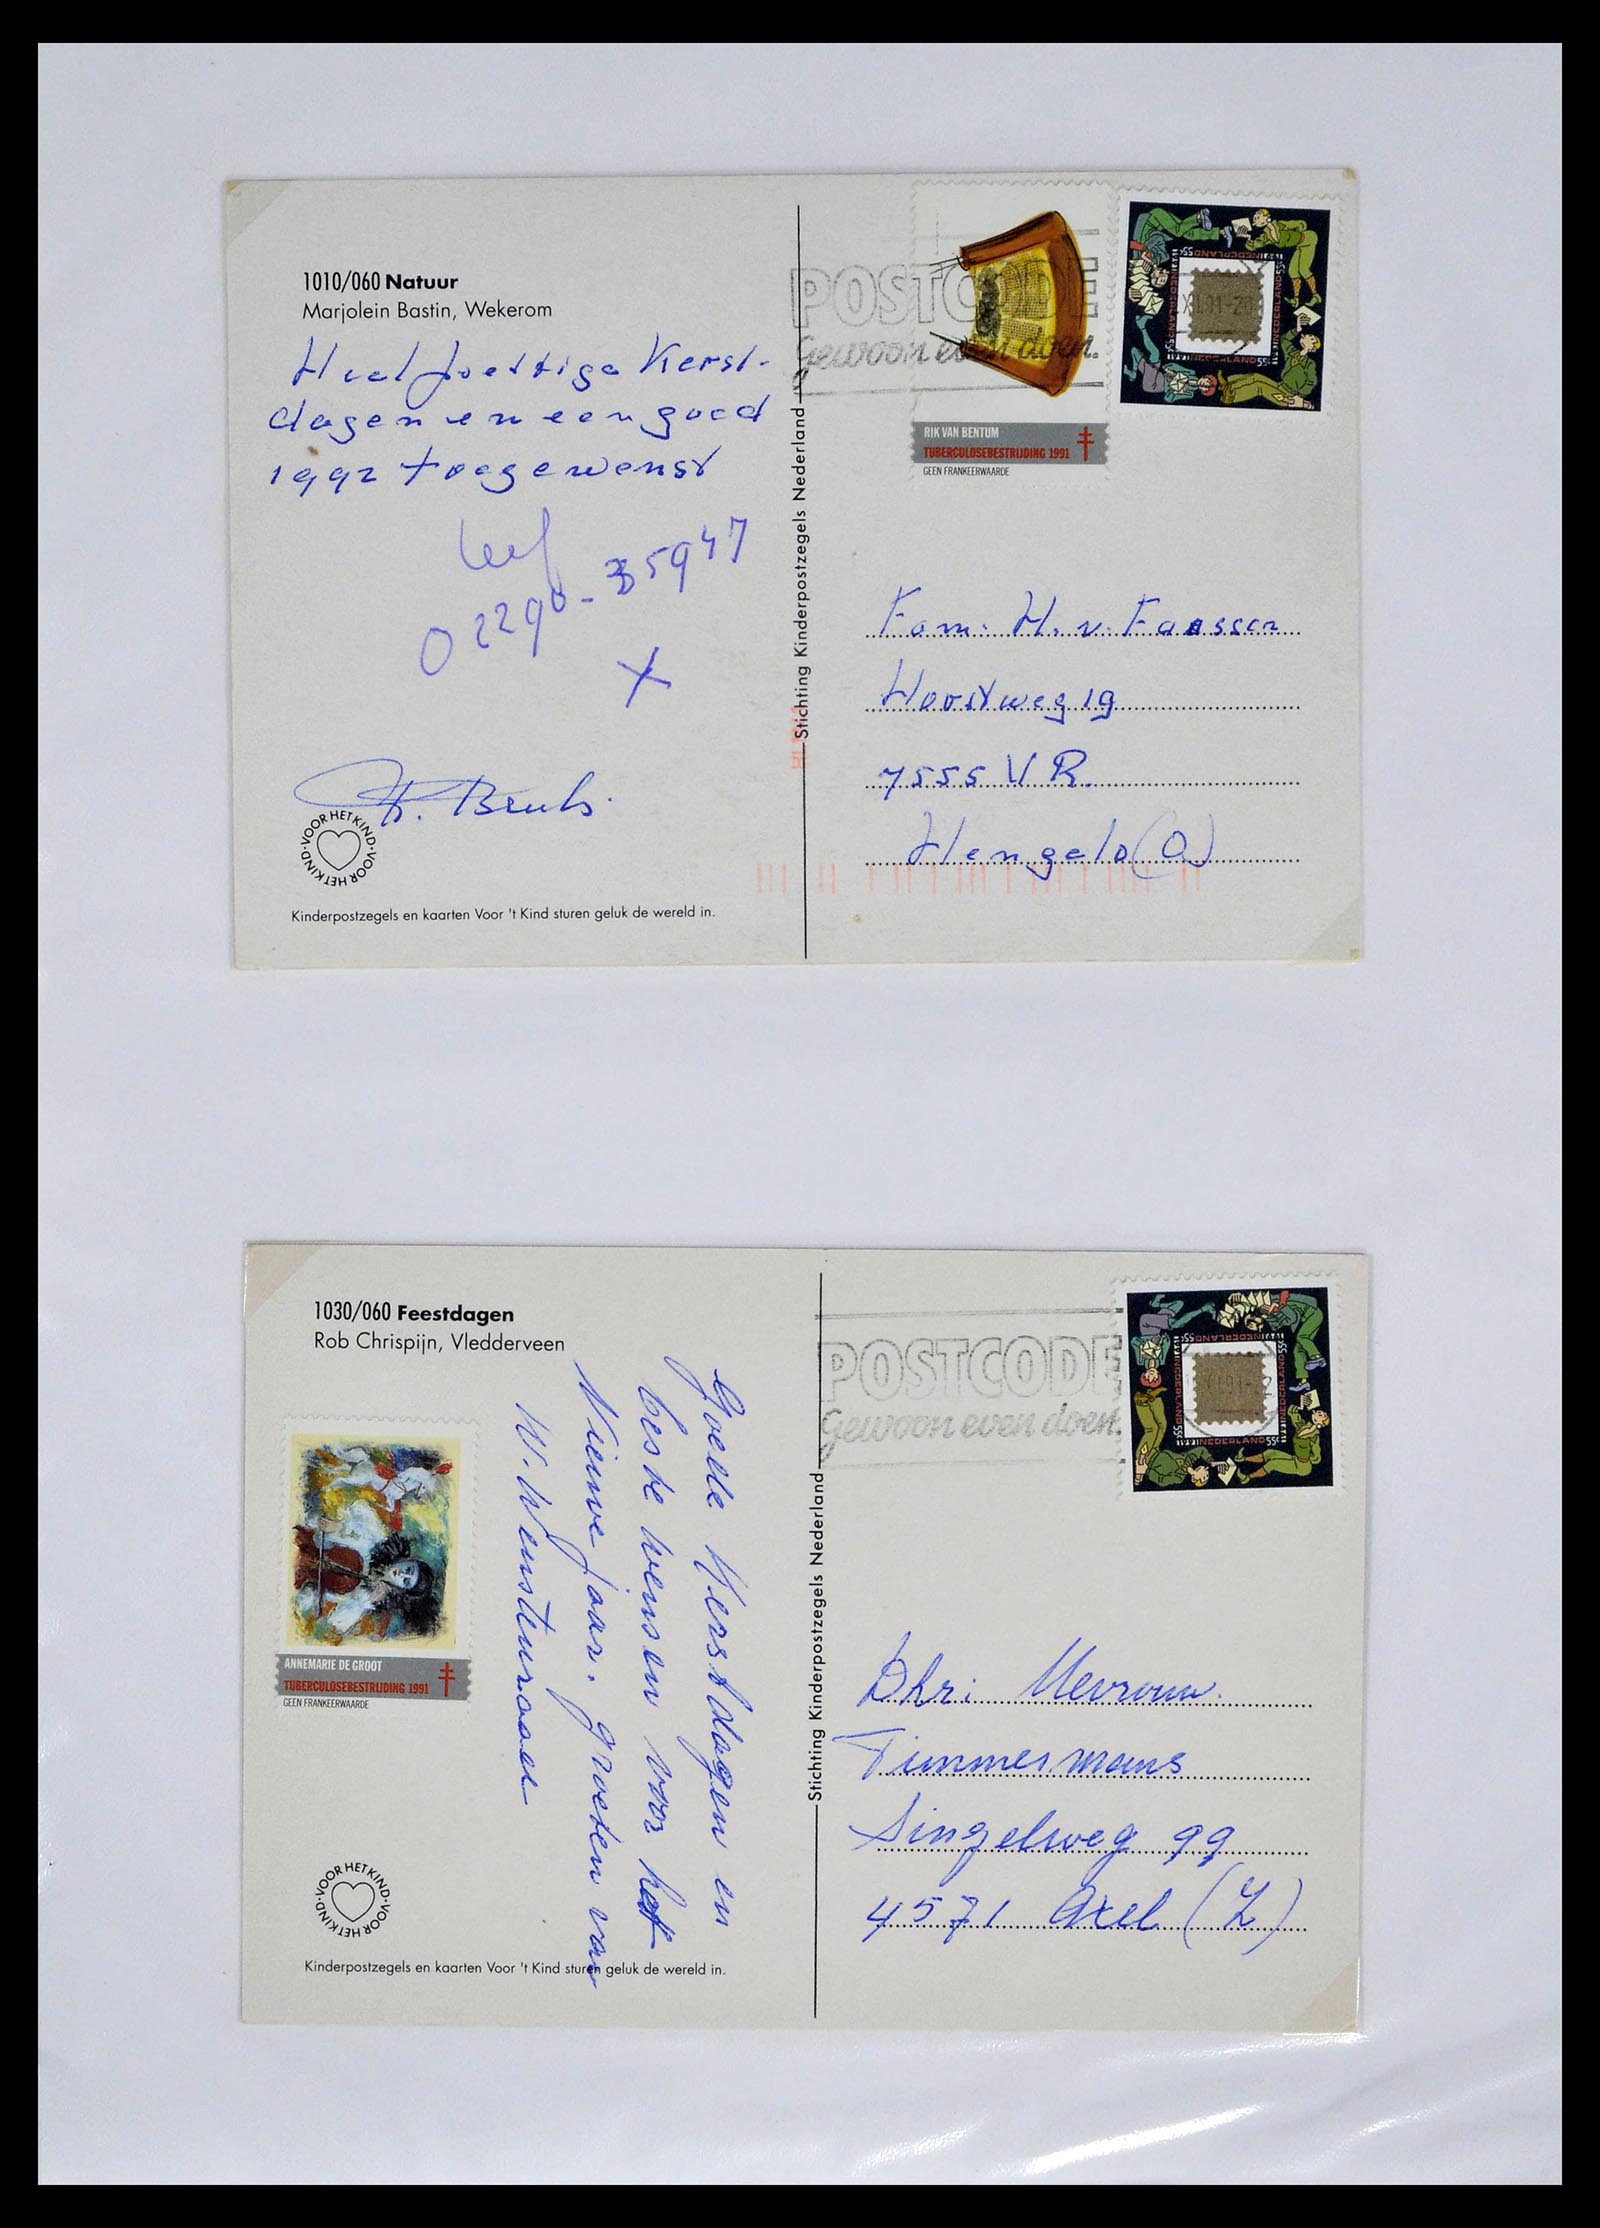 1010/060 Natuur
Marjolein Bastin, Wekerom
Heel prettige Kerst-
dagen en een goed
1992 toegewenst
02290-35947
X
Bruls.
VOOR HET KIND · VOOR HET KIND ·
Kinderpostzegels en kaarten Voor 't Kind sturen geluk de wereld in.
Stichting Kinderpostzegels Nederland
POSTCODE
Gewoon even doen.
RIK VAN BENTUM
TUBERCULOSEBESTRIJDING 1991
GEEN FRANKEERWAARDE
NEDERLAND 55c
1991
Fam. H. v. Faassen
7555 VR.
Hengelo (O)
1030/060 Feestdagen
Rob Chrispijn, Vledderveen
Goede Kerstdagen en
beste wensen voor het
Nieuwe jaar. groeten van
ANNEMARIE DE GROOT
TUBERCULOSEBESTRIJDING 1991
GEEN FRANKEERWAARDE
VOOR HET KIND · VOOR HET KIND ·
Kinderpostzegels en kaarten Voor 't Kind sturen geluk de wereld in.
Stichting Kinderpostzegels Nederland
POSTCODE
Gewoon even doen.
NEDERLAND 55c
1991
Dhr: Mevrouw.
Timmermans
Singelweg 99
4571 Axel (Z)